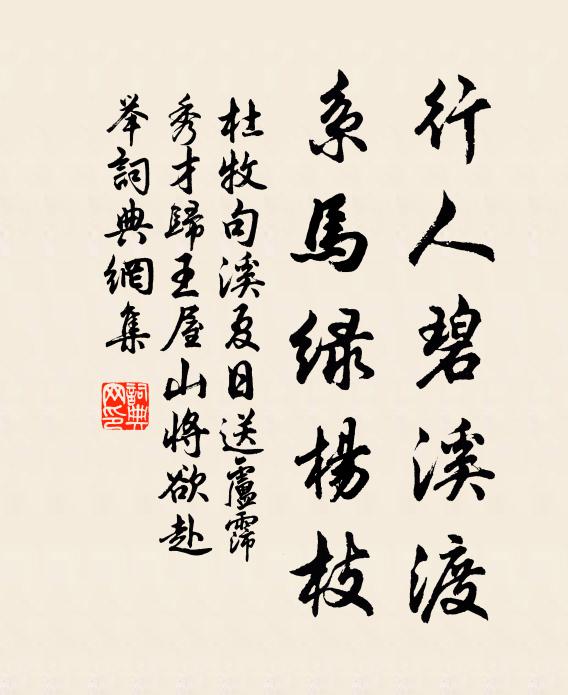 行人碧溪渡
系馬綠楊枝
杜牧句溪夏日送盧霈
秀才歸王屋山將欲赴
举詞典網集
詞典
网印